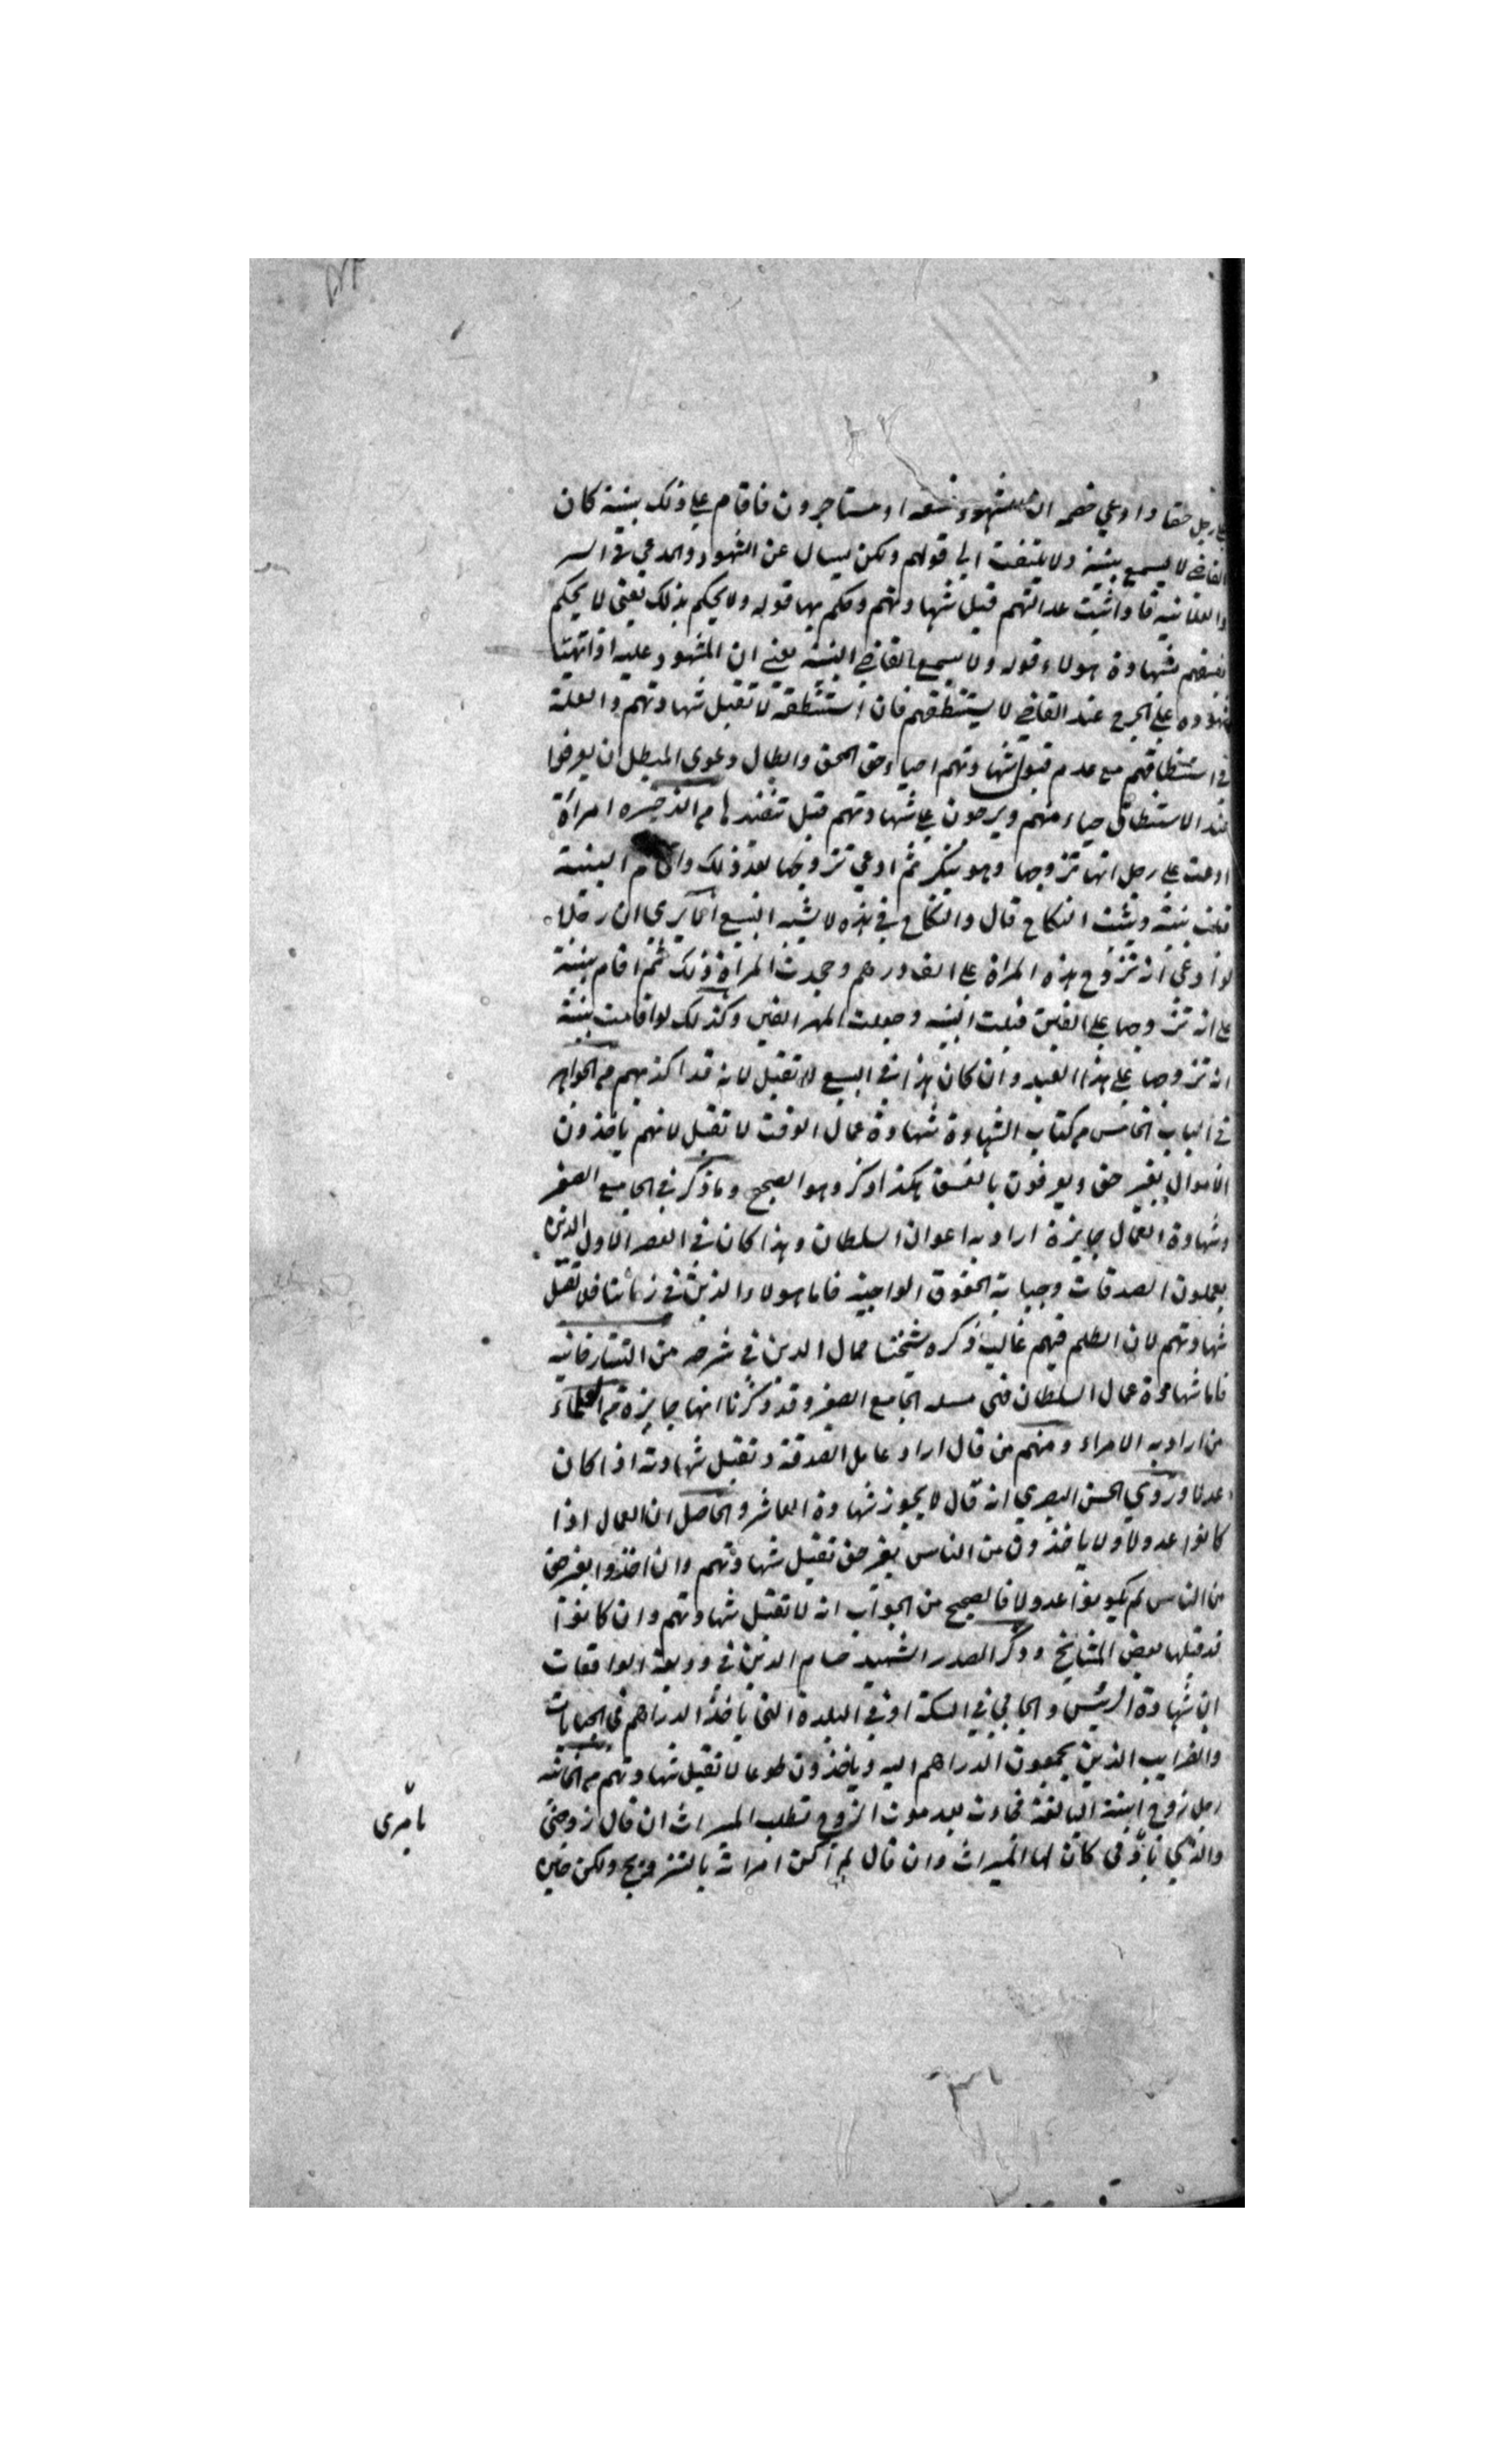 على رجل حقا وادعي خصمه ان الشهود فسقه او مستاجرون فاقام على ذلك بينة كان
القاضي لا يسمع بينته ولا يلتفت الي قولهم ولكن يسال عن الشهود والمدعي في السر
والعلانيه فاذا ثبت عدالتهم قبل شهادتهم وحكم بها قوله ولا يحكم بذلك يعني لا يحكم
بفسقهم بشهادة هولاء قوله ولا يسمع القاضي البينة يعني ان المشهود عليه اذا تهيئا
شهوده على الجرح عند القاضي لا يستنطقهم فان استنطقه لا تقبل شهادتهم والعلة
في استنطاقهم مع عدم قبول شهادتهم احياء حق المحق وابطال دعوى المبطل ان يعرضوا
عند الاستنطاق حياء منهم ويرجعون على شهادتهم قبل تنفيذها من الذخيره امراة
ادعت على رجل انها تزوجها وهو ينكر ثم ادعي تزوجها بعد ذلك واقام البينة
قبلت بينته ويثبت النكاح قال والنكاح في هذه لا يشبه البيع الا يري ان رجلا
لو ادعى انه تزوج هذه المراة على الف درهم وجحدت المراة ذلك ثم اقام بينة
على انه تزوجها على الفين قبلت البينه وجعلت المهر الفين وكذلك لو اقامت بينة
انه تزوجها على هذا العبد وان كان هذا في البيع لا تقبل لانه قد اكذبهم من الجواهر
في الباب الخامس من كتاب الشهادة شهادة عمال الوقت لا تقبل لانهم ياخذون
الاموال بغير حق ويعرفون بالفسق هكذا ذكر وهو الصحيح وما ذكر في الجامع الصغير
وشهادة العمال جايزة اراد به اعوان السلطان وهذا كان في العصر الاول الذين
يعملون الصدقات وجباية الحقوق الواجبه فاما هولاء الذين في زماننا فلا تقبل
شهادتهم لان الظلم فيهم غالب ذكره شيخنا جمال الدين في شرحه من التتارخانيه
فاما شهادة عمال السلطان فهى مسئله الجامع الصغير وقد ذكرنا انها جايزة من العلماء
من اراد به الامراء ومنهم من قال اراد عامل الصدقة وتقبل شهادته اذا كان
عدلا وروي الحسن البصري انه قال لا يجوز شهادة العاشر والحاصل ان العمال اذا
كانوا عدولا ولا ياخذون من الناس بغير حق تقبل شهادتهم وان اخذوا بغير حق
من الناس لم يكونوا عدولا فالصحيح من الجواب انه لا تقبل شهادتهم وان كانوا
قد قبلها بعض المشايخ وذكر الصدر الشهيد حسام الدين في وديعة الواقعات
ان شهادة الرئيس والجابي في السكة او في البلدة التى ياخذ الدراهم في الجبايات
والضرايب الذين يجمعون الدراهم اليه وياخذون طوعا لا تقبل شهادتهم من الخانيه
رجل زوج ابنته البالغة فجاءت بعد موت الزوج تطلب الميراث ان قال زوجني
والدي باذني كان لها الميراث وان قال لم اكن امرته بالتزويج ولكن حين
بامرى